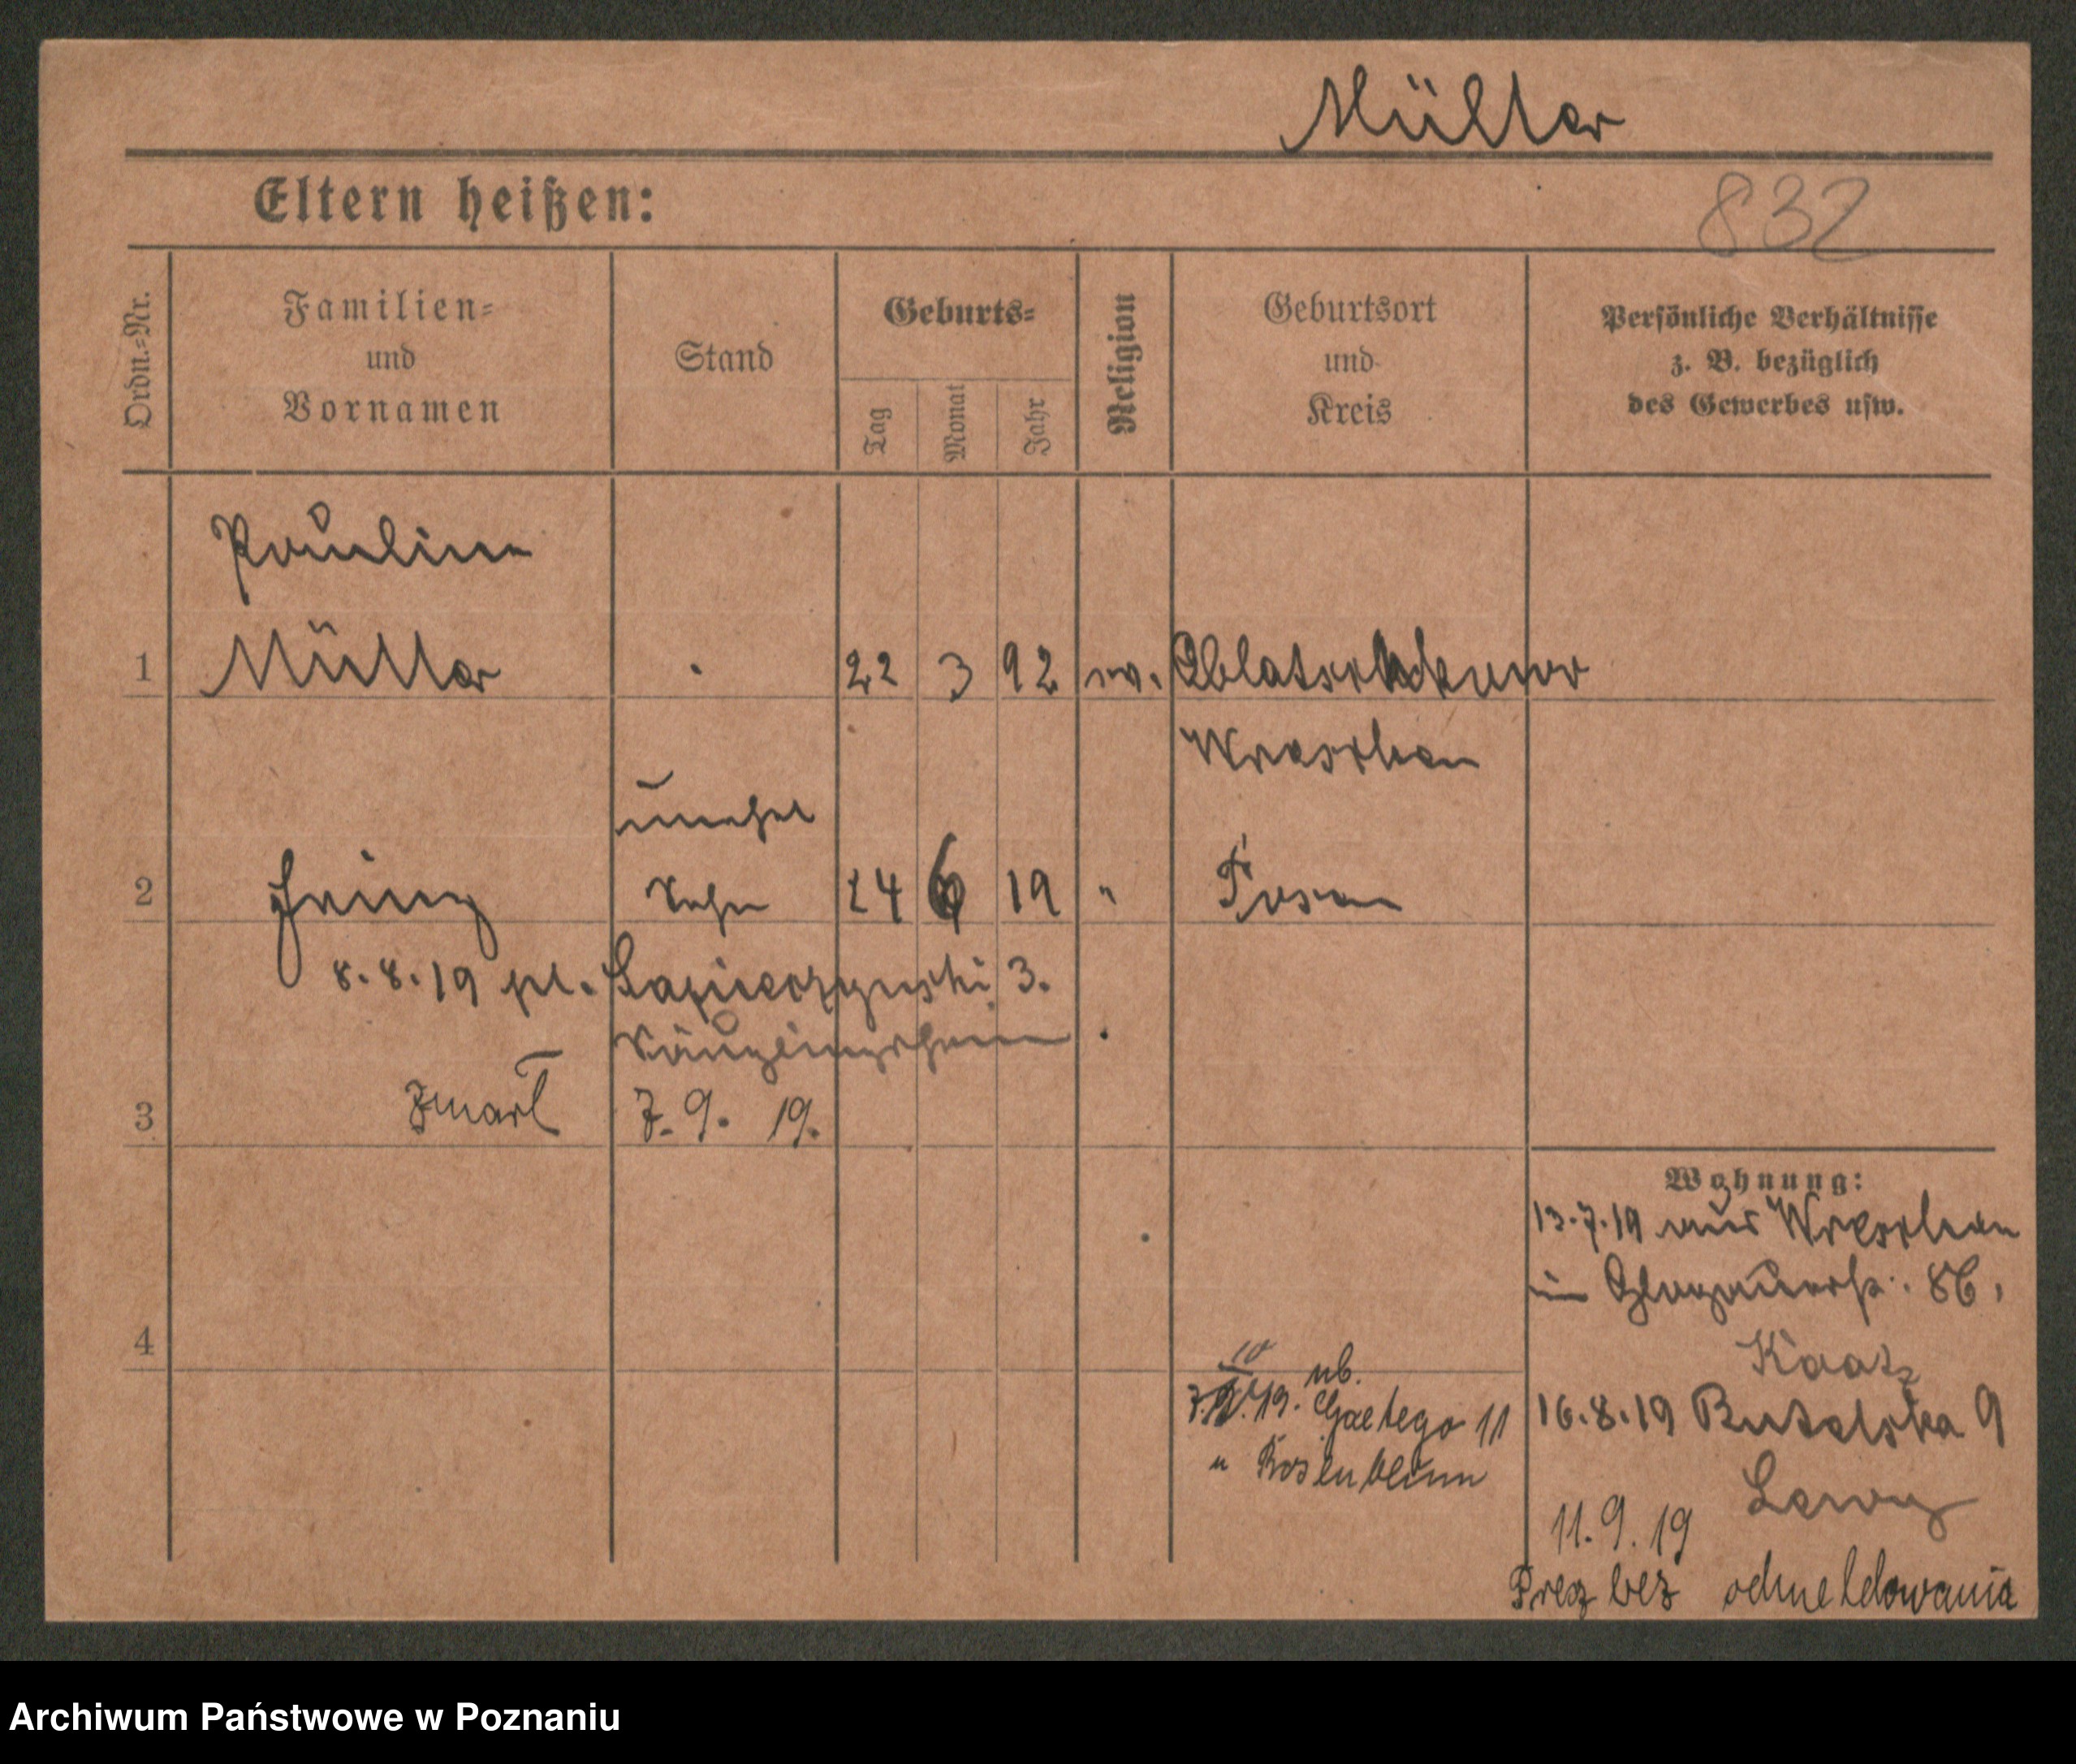 Müller
Eltern heißen:
832
Ordn.-Nr.
Familien-
und
Vornamen
Stand
Geburts-
Tag
Monat
Jahr
Religion
Geburtsort
und
Kreis
Persönliche Verhältnisse
z. B. bezüglich
des Gewerbes usw.
Pauline
1 Müller 22 3 92 ev.
Wreschen
unehel
2 Heinz Sohn 24 6 19 " Posen
8.8.19 pl. Sapieżynski 3.
Säuglingsheim
3 zmarł 7. 9. 19.
Wohnung:
13.7.19 aus Wreschen
in Glogauerstr. 86.
4
Kaatz
ub.
16.8.19 Butelska 9
7. 19. 11
u Rosenblum
Lewy
11.9.19
Prez bez odmeldowania
Archiwum Państwowe w Poznaniu